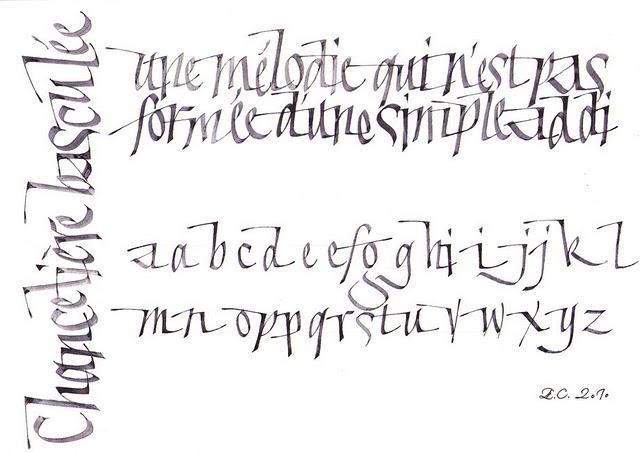 Chancelière basculée
une mélodie qui n'est pas
formée d'une simple addi
a a b c d e e f g g h i i j j k l
m n o p p q r s t u v w x y z
2010